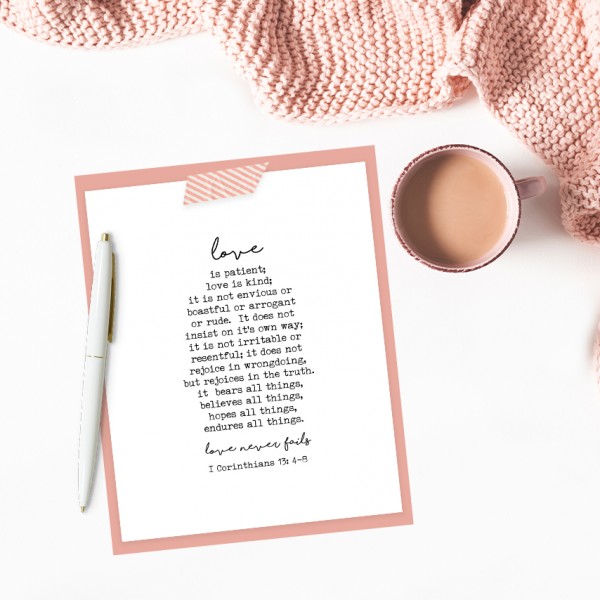 love
is patient;
love is kind;
it is not envious or
boastful or arrogant
or rude. It does not
insist on it's own way;
it is not irritable or
resentful; it does not
rejoice in wrongdoing,
but rejoices in the truth.
it bears all things,
believes all things,
hopes all things,
endures all things.
love never fails
I Corinthians 13: 4-8